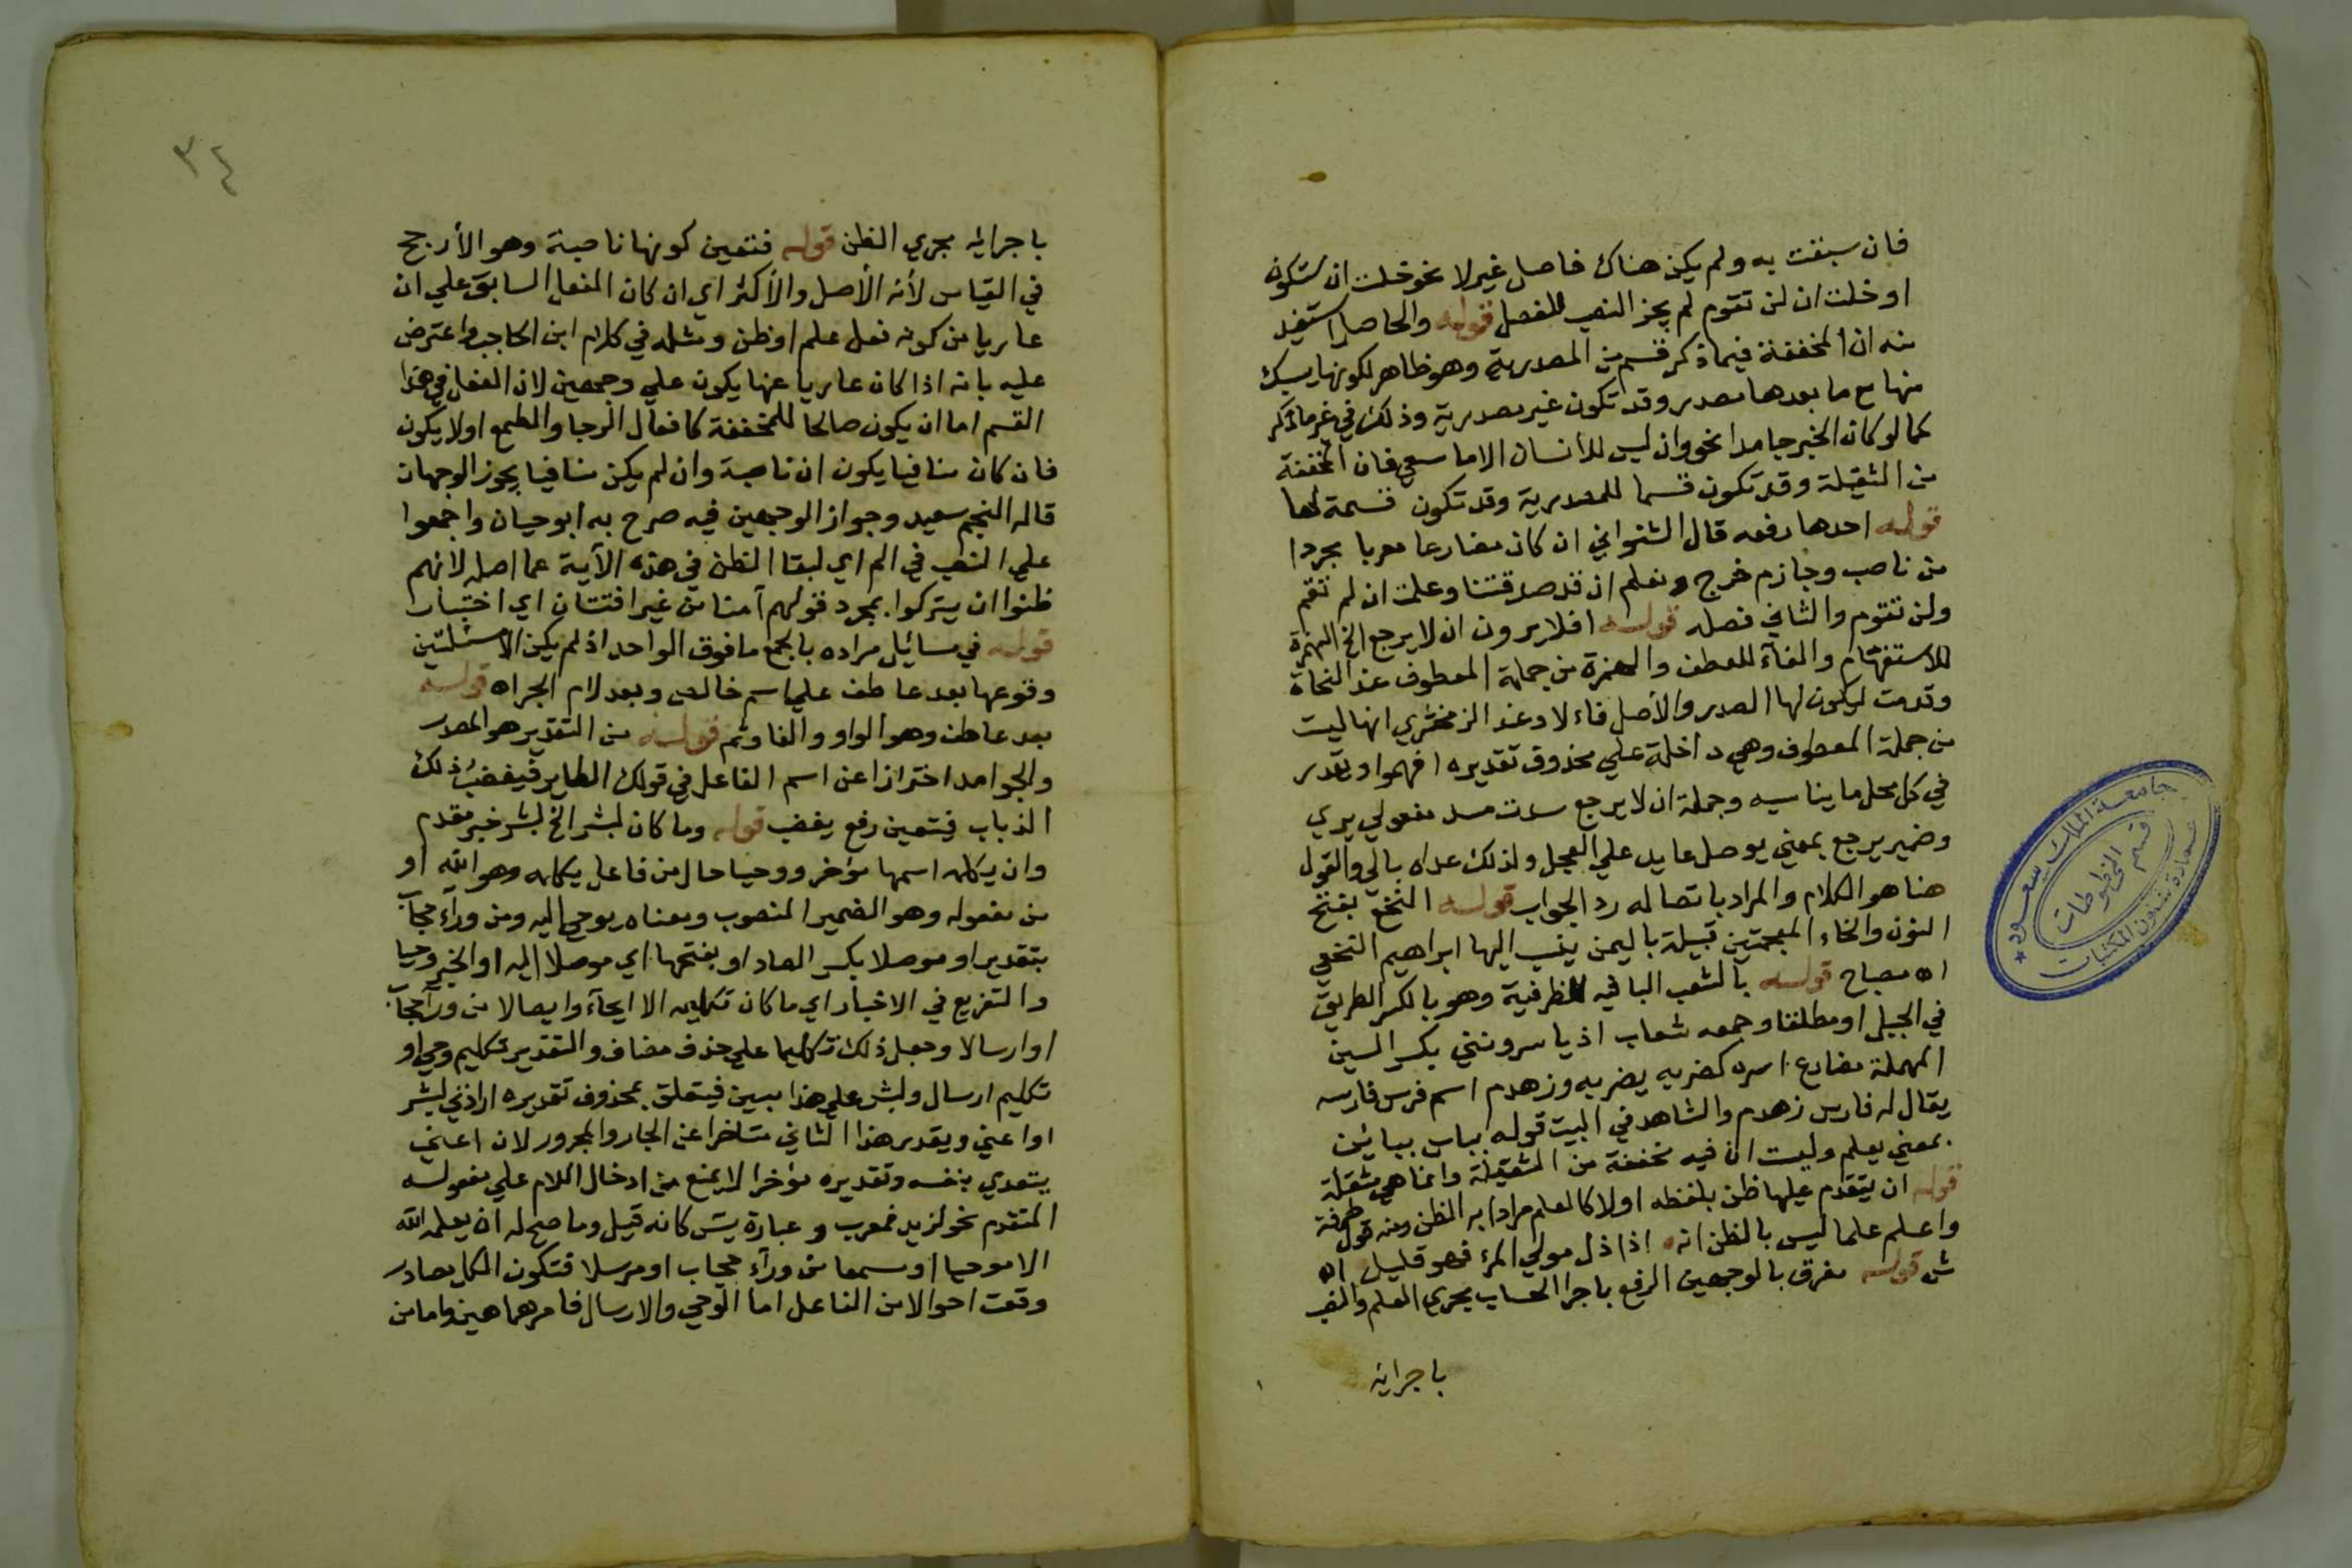 فان سبقت به ولم يكن هناك فاصل غير لا نحو خلت ان ستكون
او خلت ان لن تقوم لم يجز النصب للفصل قوله والحاصل استفيد
منه ان المخففة فيما ذكر قسم من المصدرية وهو ظاهر لكونها يسبك
منها مع ما بعدها مصدر وقد تكون غير مصدرية وذلك في غير ما ذكر
كما لو كان الخبر جامدا نحو وان ليس للأنسان الا ما سعي فان المخففة
من الثقيلة وقد تكون قسما للمصدرية وقد تكون قسمة لها
قوله احدها رفعه قال الشنواني ان كان مضارعا معربا مجردا
من ناصب وجازم خرج ونعلم ان قد صدقتنا وعلمت ان لم تقم
ولن تقوم والثاني فصله قوله افلا يرون ان لا يرجع الخ الهمزة
للاستفهام والفآء للعطف والهمزة من جملة المعطوف عند النحاة
وقدمت ليكون لها الصدر والأصل فاء لا وعند الزمخشري انها ليست
من جملة المعطوف وهي داخلة علي محذوف تقديره افهموا ويقدر
في كل محل ما يناسبه وجملة ان لا يرجع سدت مسد مفعولي يري
وضمير يرجع بمعني يوصل عايد علي العجل ولذلك عداه بالي والقول
هنا هو الكلام والمراد باتصاله رد الجواب قوله النخع بفتح
النون والخاء المعجمتين قبيلة باليمن ينسب اليها ابراهيم النخعي
اه مصباح قوله بالشعب البا فيه للظرفية وهو بالكسر الطريق
في الجبل او مطلقا وجمعه شعاب اذ ياسرونني بكسر السين
المهملة مضارع اسره كضربه يضربه وزهدم اسم فرس فارسه
يقال له فارس زهدم والشاهد في البيت قوله يباس بيبائين
بمعني يعلم وليست ان فيه مخففة من الثقيلة وانما هي مثقلة
قوله ان يتقدم عليها ظن بلفظه اولا كالعلم مرادا به الظن ومنه قول طرفة
واعلم علما ليس بالظن انه اذا ذل مولي المرء فهو قليل اه
ش قوله مفرق بالوجهين الرفع باجرا الحساب مجري العلم والنصب
باجرائه
٣٤
باجرائه مجري الظن قوله فتعين كونها ناصبة وهو الأرجح
في القياس لأنه الأصل والأكثر اي ان كان الفعل السابق علي ان
عاريا من كونه فعل علم او ظن ومثله في كلام ابن الحاجب واعترض
عليه بانه اذا كان عاريا عنها يكون علي وجهين لان الفعل في هذا
القسم اما ان يكون صالحا للمخففة كافعال الرجا والطمع اولا يكون
فان كان منافيا يكون ان ناصبة وان لم يكن منافيا يجوز الوجهان
قاله النجم سعيد وجواز الوجهين فيه صرح به ابو حيان واجمعوا
علي النصب في الم اي لبقا الظن في هذه الآية عما اصله لانهم
ظنوا ان يتركوا بمجرد قولهم آمنا من غير افتتان اي اختبار
قوله في مسائل مراده بالجمع ما فوق الواحد اذ لم يكن الا مسئلتين
وقوعها بعد عاطف علي اسم خالص وبعد لام الجر اه قوله
بعد عاطف وهو الواو والفا وثم قوله من التقدير هو المصدر
والجوامد احترازا عن اسم الفاعل في قولك الطاير فيغضب ذلك
الذباب فيتعين رفع يغضب قوله وما كان لبشر الخ لبشر خبر مقدم
وان يكلمه اسمها مؤخر ووحيا حال من فاعل يكلمه وهو الله او
من مفعوله وهو الضمير المنصوب ومعناه يوحي اليه ومن ورآء حجاب
بتقدير او موصلا بكسر الصاد او بفتحها اي موصلا اليه او الخبر وحيا
والتفريع في الاخبار اي ما كان تكليمه الا ايحآء وايصالا من ورآ حجاب
او ارسالا وجعل ذلك تكليما علي حذف مضاف والتقدير تكليم وحي او
تكليم ارسال ولبشر علي هذا تبيين فيتعلق بمحذوف تقديره ارادني لبشر
او اعني ويقدر هذا الثاني متاخرا عن الجار والمجرور لان اعني
يتعدي بنفسه وتقديره مؤخرا لا يمنع من ادخال اللام علي مفعوله
المتقدم نحو لزيد ضرب وعبارة يتس كانه قيل وما صح له ان يعلمه الله
الا موحيا او مسمعا من ورآء حجاب او مرسلا فتكون الكل مصادر
وقعت احوالا من الفاعل اما الوحي والارسال فامرهما هين واما من
جامعة الملك سعود
قسم المخطوطات
عمادة شئون المكتبات